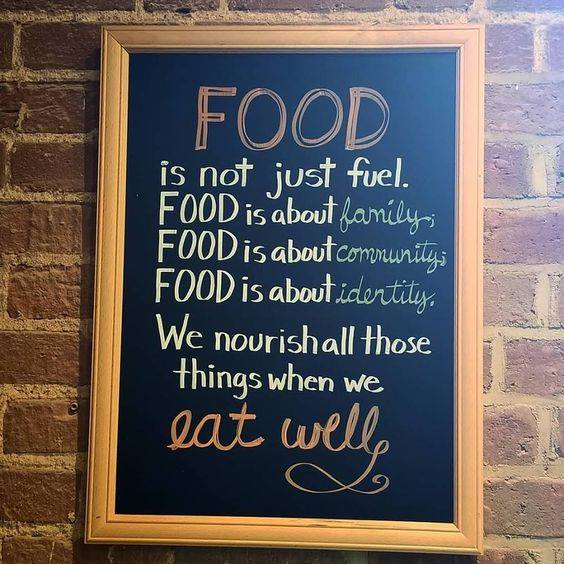 FOOD
is not just fuel.
FOOD is about family;
FOOD is about community;
FOOD is about identity.
We nourish all those
things when we
eat well